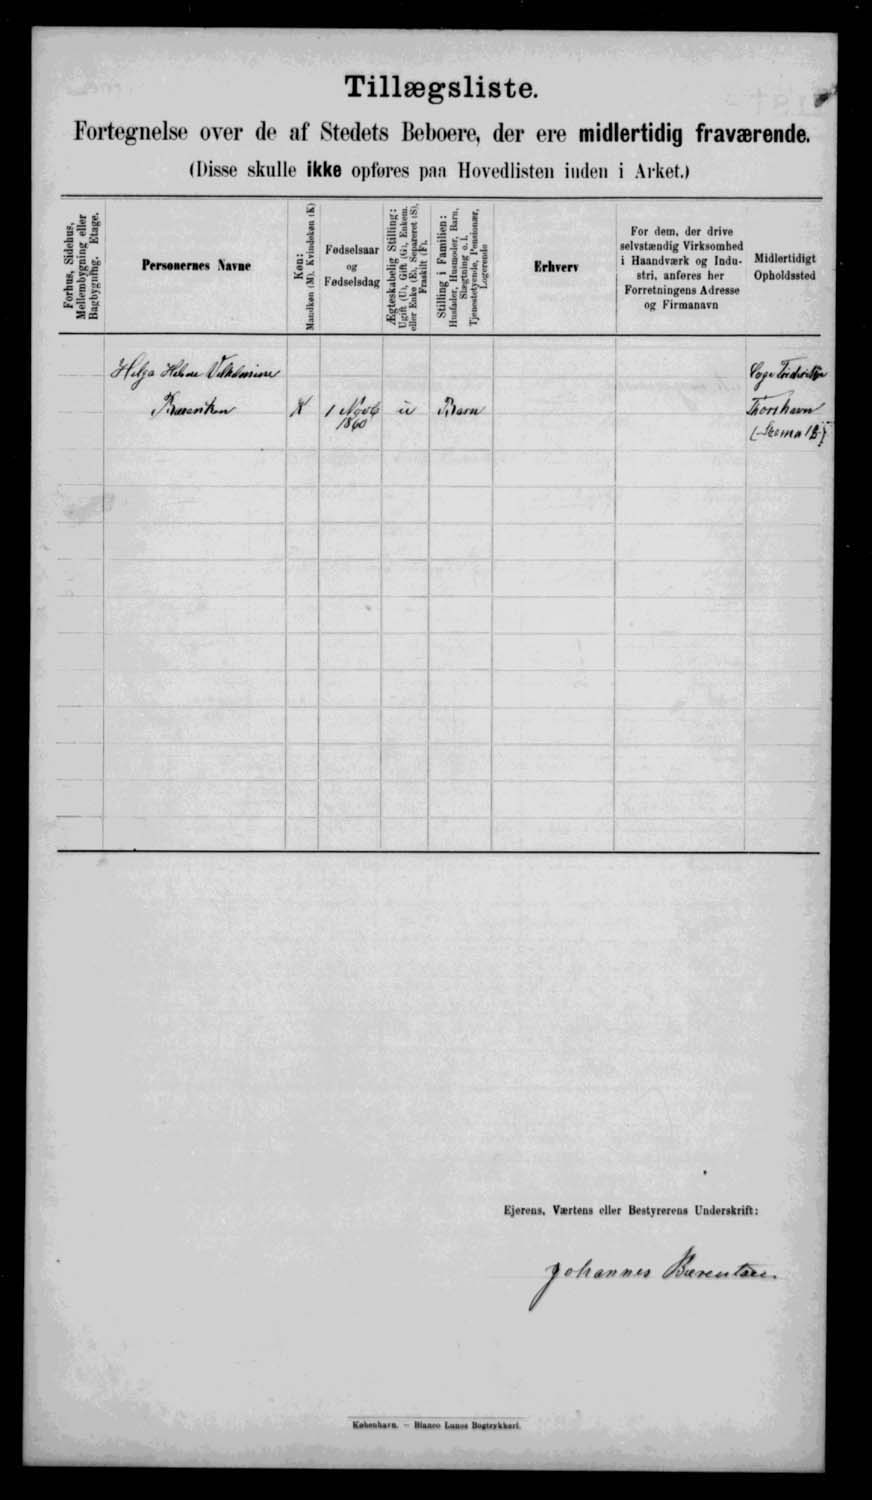 Tillægsliste.
Fortegnelse over de af Stedets Beboere, der ere midlertidig fraværende.
(Disse skulle ikke opføres paa Hovedlisten inden i Arket.)
Forhus, Sidehus,
Mellembygning eller
Bagbygning. Etage.
Personernes Navne
Køn:
Mandkøn (M). Kvindekøn (K)
Fødselsaar
og
Fødselsdag
Ægteskabelig Stilling:
Ugift (U), Gift (G), Enkem.
eller Enke (E), Separeret (S),
Fraskilt (F).
Stilling i Familien:
Husfader, Husmoder, Barn,
Slægtning o. l.
Tjenestetyende, Pensionær,
Logerende
Erhverv
For dem, der drive
selvstændig Virksomhed
i Haandværk og Indu-
stri, anføres her
Forretningens Adresse
og Firmanavn
Midlertidigt
Opholdssted
Helga Helene Vilhelmine
K 1 Novb u Barn Thorshavn
1860
Ejerens, Værtens eller Bestyrerens Underskrift:
Johannes Bærentsen.
København. — Bianco Lunos Bogtrykkeri.